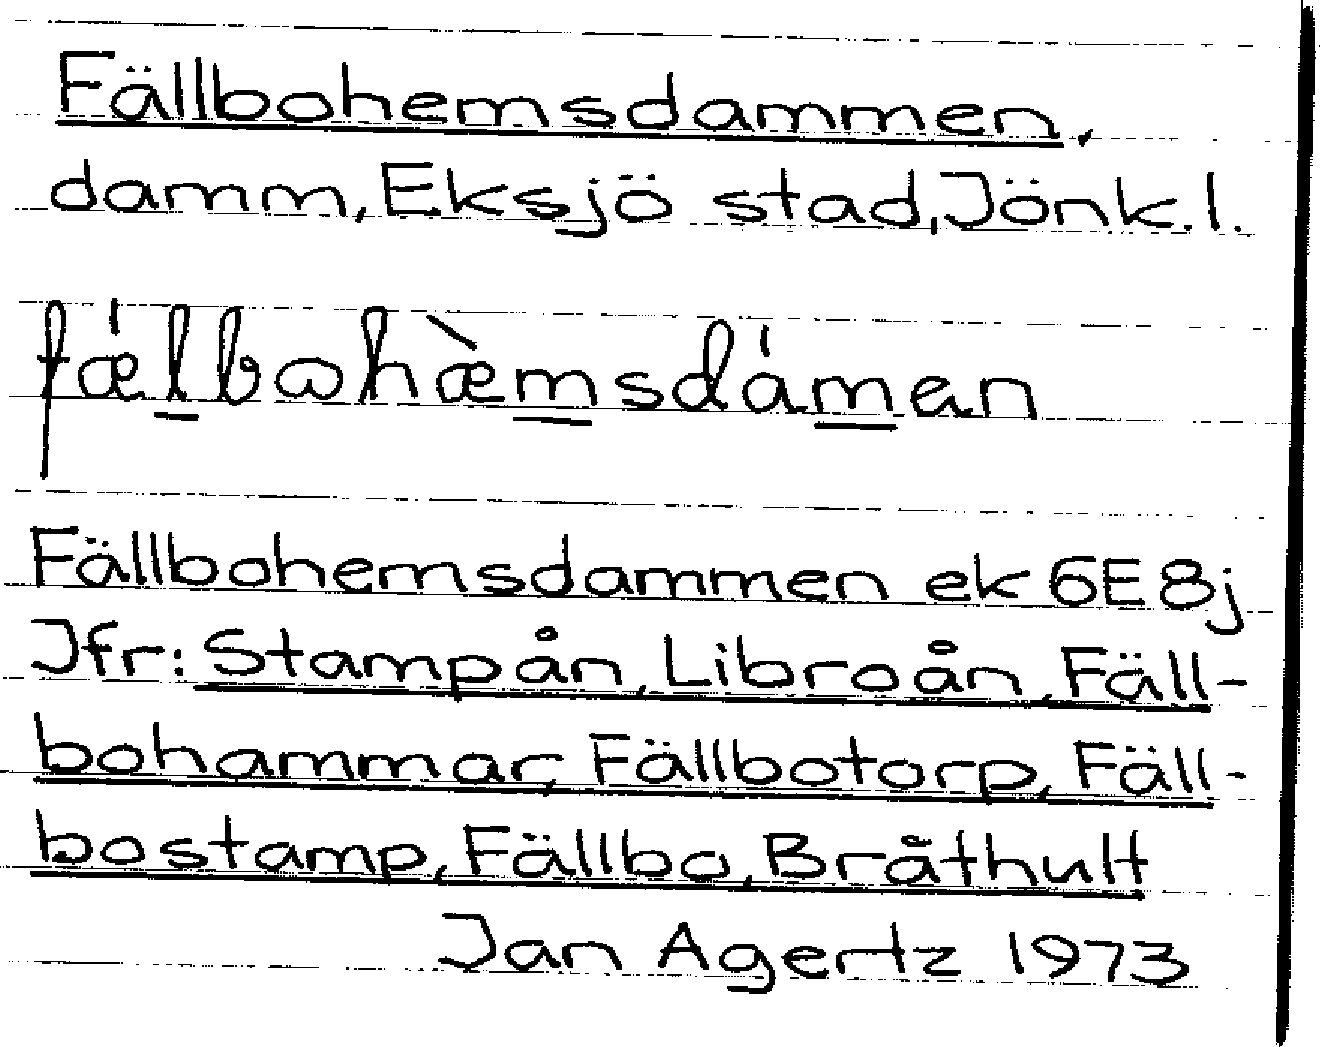 Fällbohemsdammen,
damm, Eksjö stad, Jönk.l.
fæ̍lbohæ̀msda̍mən
Fällbohemsdammen ek 6E8j
Jfr: Stampån, Libroån, Fäll-
bohammar, Fällbotorp, Fäll-
bostamp, Fällbo, Bråthult
Jan Agertz 1973